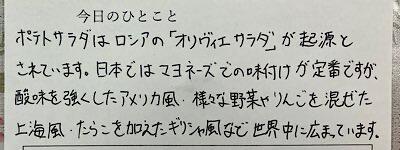 今日のひとこと
ポテトサラダはロシアの「オリヴィエサラダ」が起源と
されています。日本ではマヨネーズでの味付けが定番ですが、
酸味を強くしたアメリカ風・様々な野菜やりんごを混ぜた
上海風・たらこを加えたギリシャ風など世界中に広まっています。